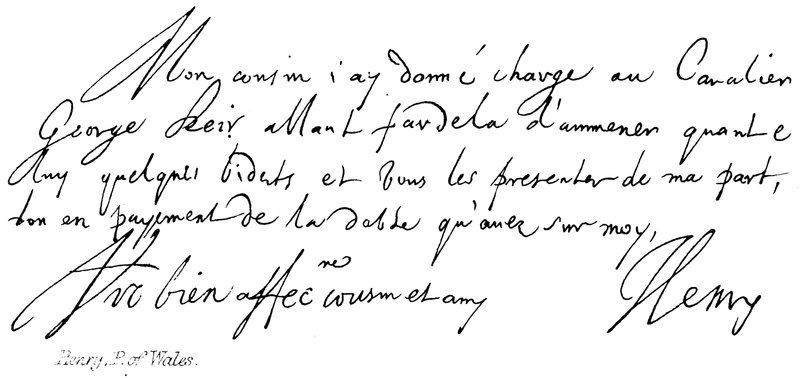 Mon cousin i'ay donné charge au Cavalier
George Keir allant pardela d'ammener quant e
luy quelques bidets et vous les presenter de ma part,
non en payement de la debte qu'avez sur moy,
Vre bien affecne cousin et amy Henry
Henry, P. of Wales.